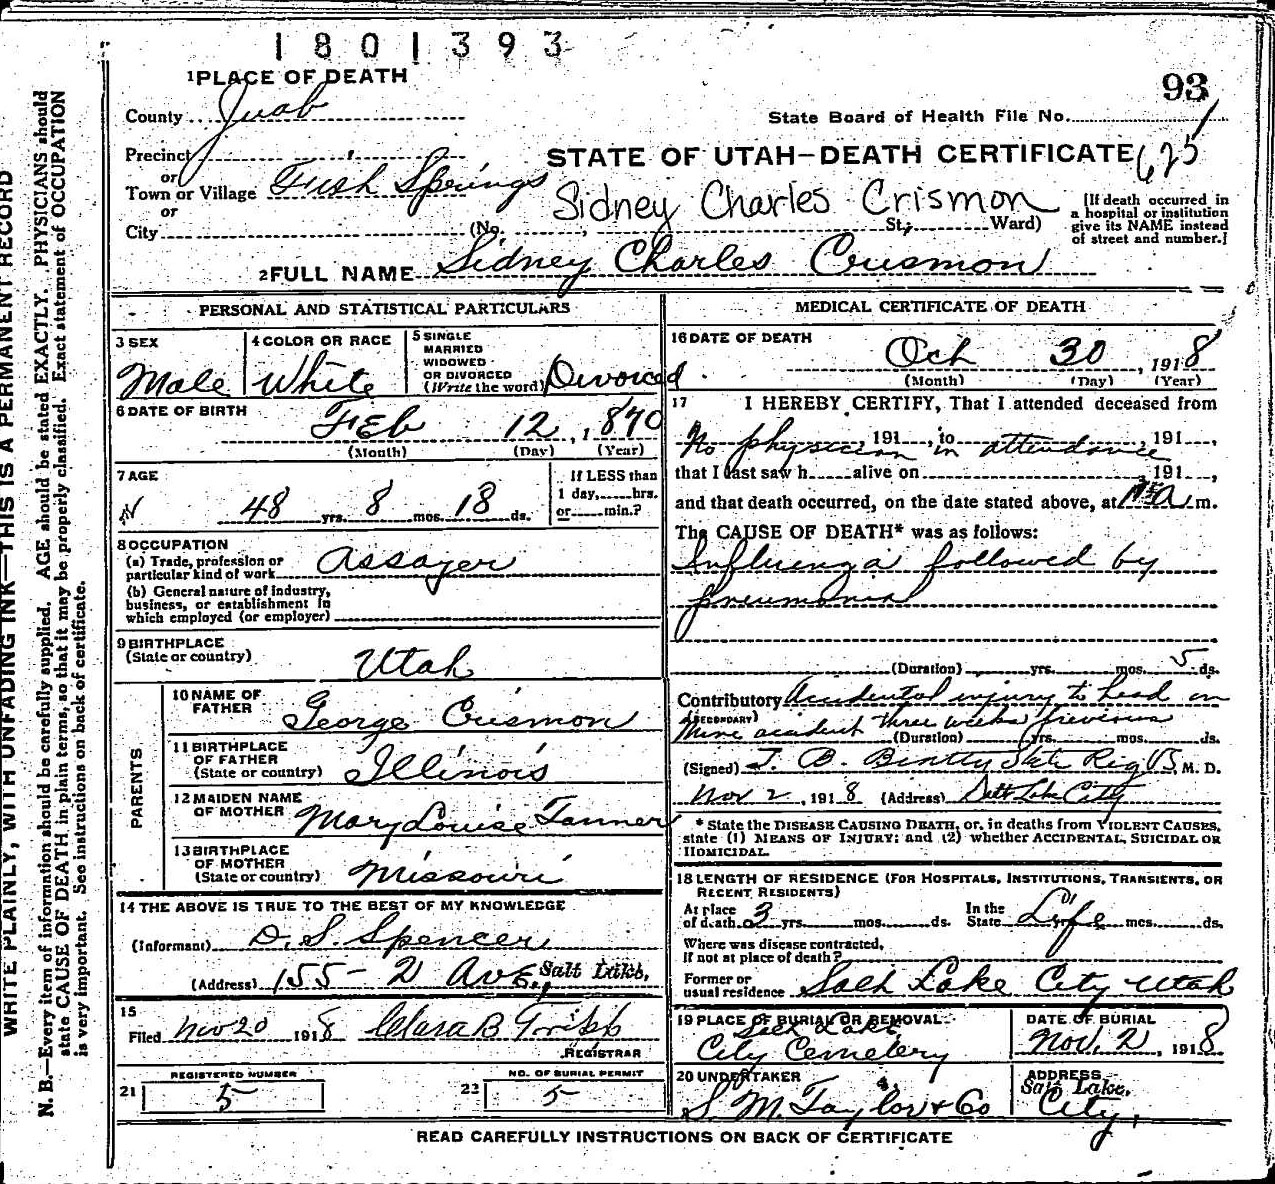 1801393
1 PLACE OF DEATH
93
County Juab
State Board of Health File No.
Precinct
STATE OF UTAH—DEATH CERTIFICATE 625
or
Town or Village Fish Springs
Sidney Charles Crismon
or
City (No. St., Ward)
[If death occurred in
a hospital or institution
give its NAME instead
of street and number.]
2 FULL NAME Sidney Charles Crismon
PERSONAL AND STATISTICAL PARTICULARS
3 SEX
Male
4 COLOR OR RACE
White
5 SINGLE
MARRIED
WIDOWED
OR DIVORCED
(Write the word) Divorced
6 DATE OF BIRTH
Feb 12, 1870
(Month) (Day) (Year)
7 AGE
48 yrs. 8 mos. 18 ds.
If LESS than
1 day, hrs.
or min.?
8 OCCUPATION
(a) Trade, profession or
particular kind of work Assayer
(b) General nature of industry,
business, or establishment in
which employed (or employer)
9 BIRTHPLACE
(State or country) Utah
PARENTS
10 NAME OF
FATHER George Crismon
11 BIRTHPLACE
OF FATHER
(State or country) Illinois
12 MAIDEN NAME
OF MOTHER Mary Louise Tanner
13 BIRTHPLACE
OF MOTHER
(State or country) Missouri
14 THE ABOVE IS TRUE TO THE BEST OF MY KNOWLEDGE
(Informant) D. S. Spencer
(Address) 155 - 2 Ave., Salt Lake,
15
Filed Nov 20 1918 Clara B Tripp
REGISTRAR
REGISTERED NUMBER
21 5
NO. OF BURIAL PERMIT
22 5
MEDICAL CERTIFICATE OF DEATH
16 DATE OF DEATH
Oct 30, 1918
(Month) (Day) (Year)
17 I HEREBY CERTIFY, That I attended deceased from
No physician, 191, to in attendance, 191,
that I last saw h alive on, 191,
and that death occurred, on the date stated above, at m.
The CAUSE OF DEATH* was as follows:
Influenza followed by
pneumonia
(Duration) yrs. mos. 5 ds.
Contributory Accidental injury to head in
(SECONDARY) Mine accident three weeks previous
(Duration) yrs. mos. ds.
(Signed) T. B. Beatty State Reg VS, M. D.
Nov 2, 1918 (Address) Salt Lake City
* State the DISEASE CAUSING DEATH, or, in deaths from VIOLENT CAUSES,
state (1) MEANS OF INJURY; and (2) whether ACCIDENTAL, SUICIDAL OR
HOMICIDAL.
18 LENGTH OF RESIDENCE (FOR HOSPITALS, INSTITUTIONS, TRANSIENTS, OR
RECENT RESIDENTS)
At place
of death 3 yrs. mos. ds.
In the
State Life yrs. mos. ds.
Where was disease contracted,
if not at place of death?
Former or
usual residence Salt Lake City Utah
19 PLACE OF BURIAL OR REMOVAL
Salt Lake
City Cemetery
DATE OF BURIAL
Nov. 2, 1918
20 UNDERTAKER
S. M. Taylor & Co
ADDRESS
Salt Lake,
City,
READ CAREFULLY INSTRUCTIONS ON BACK OF CERTIFICATE
WRITE PLAINLY, WITH UNFADING INK—THIS IS A PERMANENT RECORD
N. B.—Every item of information should be carefully supplied. AGE should be stated EXACTLY. PHYSICIANS should
state CAUSE OF DEATH in plain terms, so that it may be properly classified. Exact statement of OCCUPATION
is very important. See instructions on back of certificate.